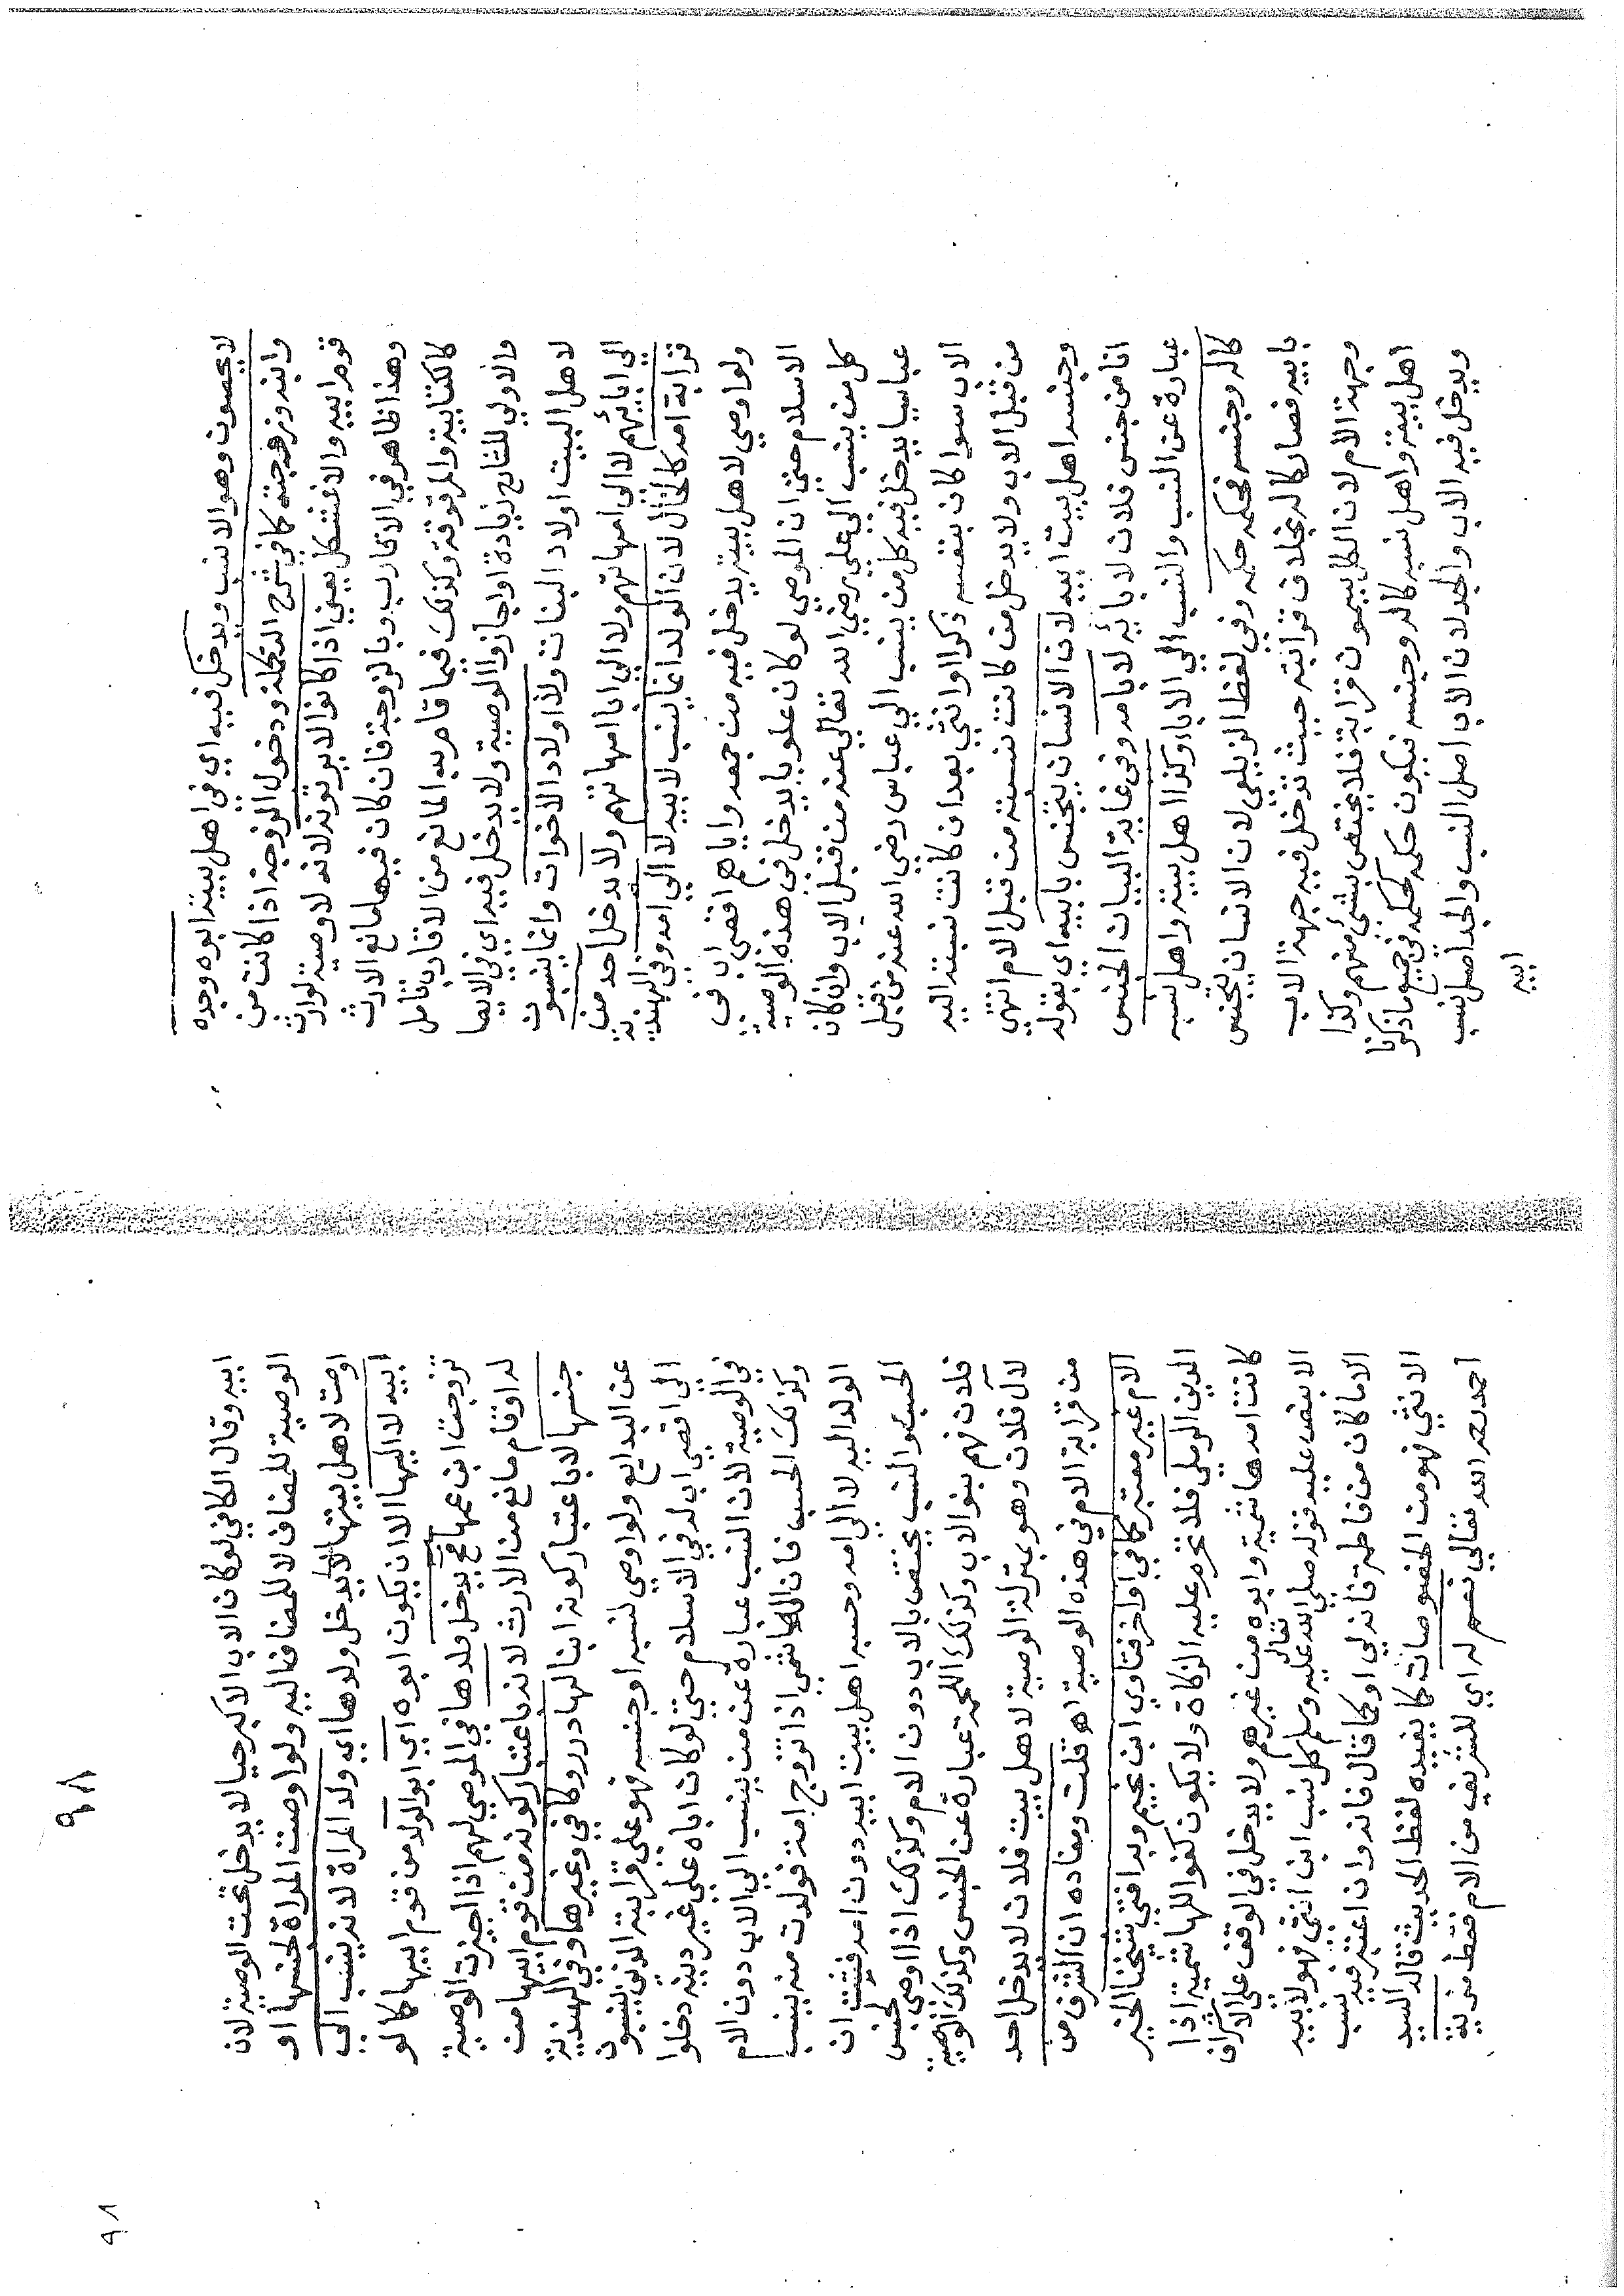 لا يحصون وهو الانسب ويدخل فيه اي في اهل بيته ابوه وجده
وابنه وزوجته كما في شرح التكملة ودخول الزوجة اذا كانت من
قوم ابيه والا فشكل يعني اذا كانوا لا يرثونه لانه لا وصية لوارث
وهذا ظاهر في الاقارب وبالزوجة فان كان فيها مانع الارث
كالكتابية والمرقوقة وكذلك فيما قام به المانع من الاقارب تامل
والاولي للشارح زيادة او اجازوا الوصية ولا يدخل فيه اي في الايصا
لاهل البيت اولاد البنات ولا اولاد الاخوات وانما ينسبون
الي ابائهم لا الي امهاتهم ولا الي ابا امهاتهم ولا يدخل احد من
قرابة امه كالخال لان الولد انما ينسب لابيه لا الي امه وفي الهندية
ولو اوصي لاهل بيته يدخل فيه من جمعه واياهم اقصي اب في
الاسلام حتي ان الموصي لو كان علويا يدخل في هذه الوصية
كل من ينسب الي علي رضي الله تعالي عنه من قبل الاب وان كان
عباسيا يدخل فيه كل من ينسب الي عباس رضي الله عنه من قبل
الاب سوا كان بنفسه ذكرا او انثي بعد ان كانت نسبته اليه
من قبل الاب ولا يدخل من كانت نسبته من قبل الام انتهي
وجنسه اهل بيت ابيه لان الانسان يتجنس بابيه اي بقوله
انا من جنس فلان لابائه لا بامه وفي غاية البيان الجنس
عبارة عن النسب والنسب الي الاباء وكذا اهل بيته واهل نسبه
كاله وجنسه فحكمه حكمه وفي لفظ الزيلعي لان الانسان يتجنس
بابيه فصار كاله بخلاف قرابته حيث تدخل فيه جهة الاب
وجهة الام لان الكل يسمون قرابة فلا يختص بشئ منهم وكذا
اهل بيته واهل نسبه كاله وجنسه فيكون حكمه كحكمه في جميع ما ذكرنا
ويدخل فيه الاب والجد لان الاب اصل النسب والجد اصل نسب
ابيه
٩٨
ابيه وقال الكافي لو كان الاب الاكبر حيا لا يدخل تحت الوصية لان
الوصية للمضاف لا للمضاف اليه ولو اوصت المراة لجنسها او
اوصت لاهل بيتها لا يدخل ولدها اي ولد المراة لانه ينسب الي
ابيه لا اليها الا ان يكون ابوه اي ابو الولد من قوم ابيها كما لو
تزوجت ابن عمها يدخل ولدها في الموصي لهم اذا اجيزت الوصية
له او قام مانع من الارث لانه باعتبار كونه من قوم ابيها من
جنسها لا باعتبار كونه ابنا لها درر وكافي وغيرها وفي الهندية
عن البدايع ولو اوصي لنسبه او جنسه فهو علي قرابته الذين ينسبون
الي اقصي اب له في الاسلام حتي لو كان اباه علي غير دينه دخلوا
في الوصية لان النسب عبارة عن من ينسب الي الاب دون الام
وكذلك الحسب فان الهاشمي اذا تزوج امة فولدت منه ينسب
الولد اليه لا الي امه وحسبه اهل بيت ابيه دون امه فثبت ان
الحسب والنسب يختص بالاب دون الام وكذلك اذا اوصي لجنس
فلان فهم بنو الاب وكذلك اللحمة عبارة عن الجنس وكذلك الوصية
لال فلان وهو بمنزلة الوصية لاهل بيت فلان لا يدخل احد
من قرابة الام في هذه الوصية اه قلت ومفاده ان الشرف من
الام غير معتبر كما في اواخر فتاوي ابن نجيم وبه افتي شيخنا الخير
الدين الرملي فلا تحرم عليه الزكاة ولا يكون كفوا للهاشمية اذا
كانت امه هاشمية وابوه من غيرهم ولا يدخل في الوقف علي الاشراف
الا بنص عليه قوله صلي الله تعالي عليه وسلم كل نسب ابن انثي فهو لابيه
الا ما كان من فاطمة فانه لي او كما قال فانه وان اعتبر فيه نسب
الانثي فهو من الخصوصات كما يفيده لفظ الحديث قاله السيد
احمد رحمه الله تعالي نعم له اي للشريف من الام فقط مزية
٩٨